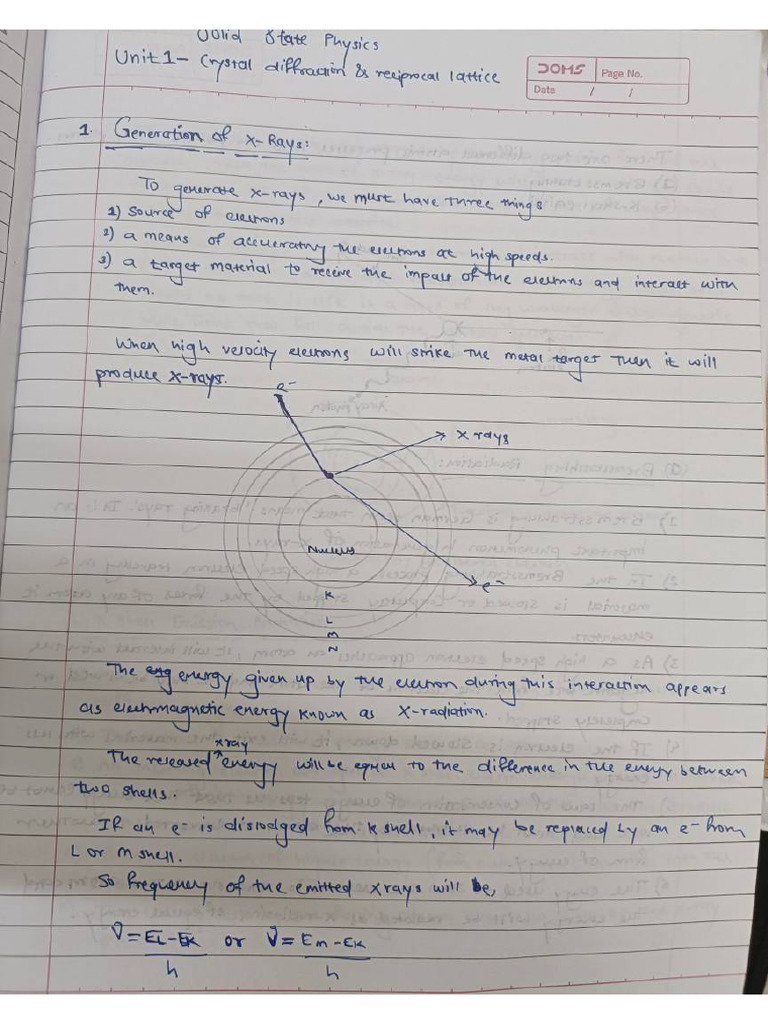 Solid State Physics
Unit 1 - Crystal diffraction & reciprocal lattice
DOMS Page No.
Date / /
1. Generation of X-Rays:
To generate x-rays, we must have three things
1) source of electrons
2) a means of accelerating the electrons at high speeds.
3) a target material to receive the impact of the electrons and interact with
them.
When high velocity electrons will strike the metal target then it will
produce x-rays.
e-
X rays
Nucleus
e-
K
L
M
N
The energy given up by the electron during this interaction appears
as electromagnetic energy known as X-radiation.
The released xray energy will be equal to the difference in the energy between
two shells.
If an e- is dislodged from k shell, it may be replaced by an e- from
L or M shell.
So frequency of the emitted x rays will be,
ν = EL-EK / h or ν = Em-EK / h